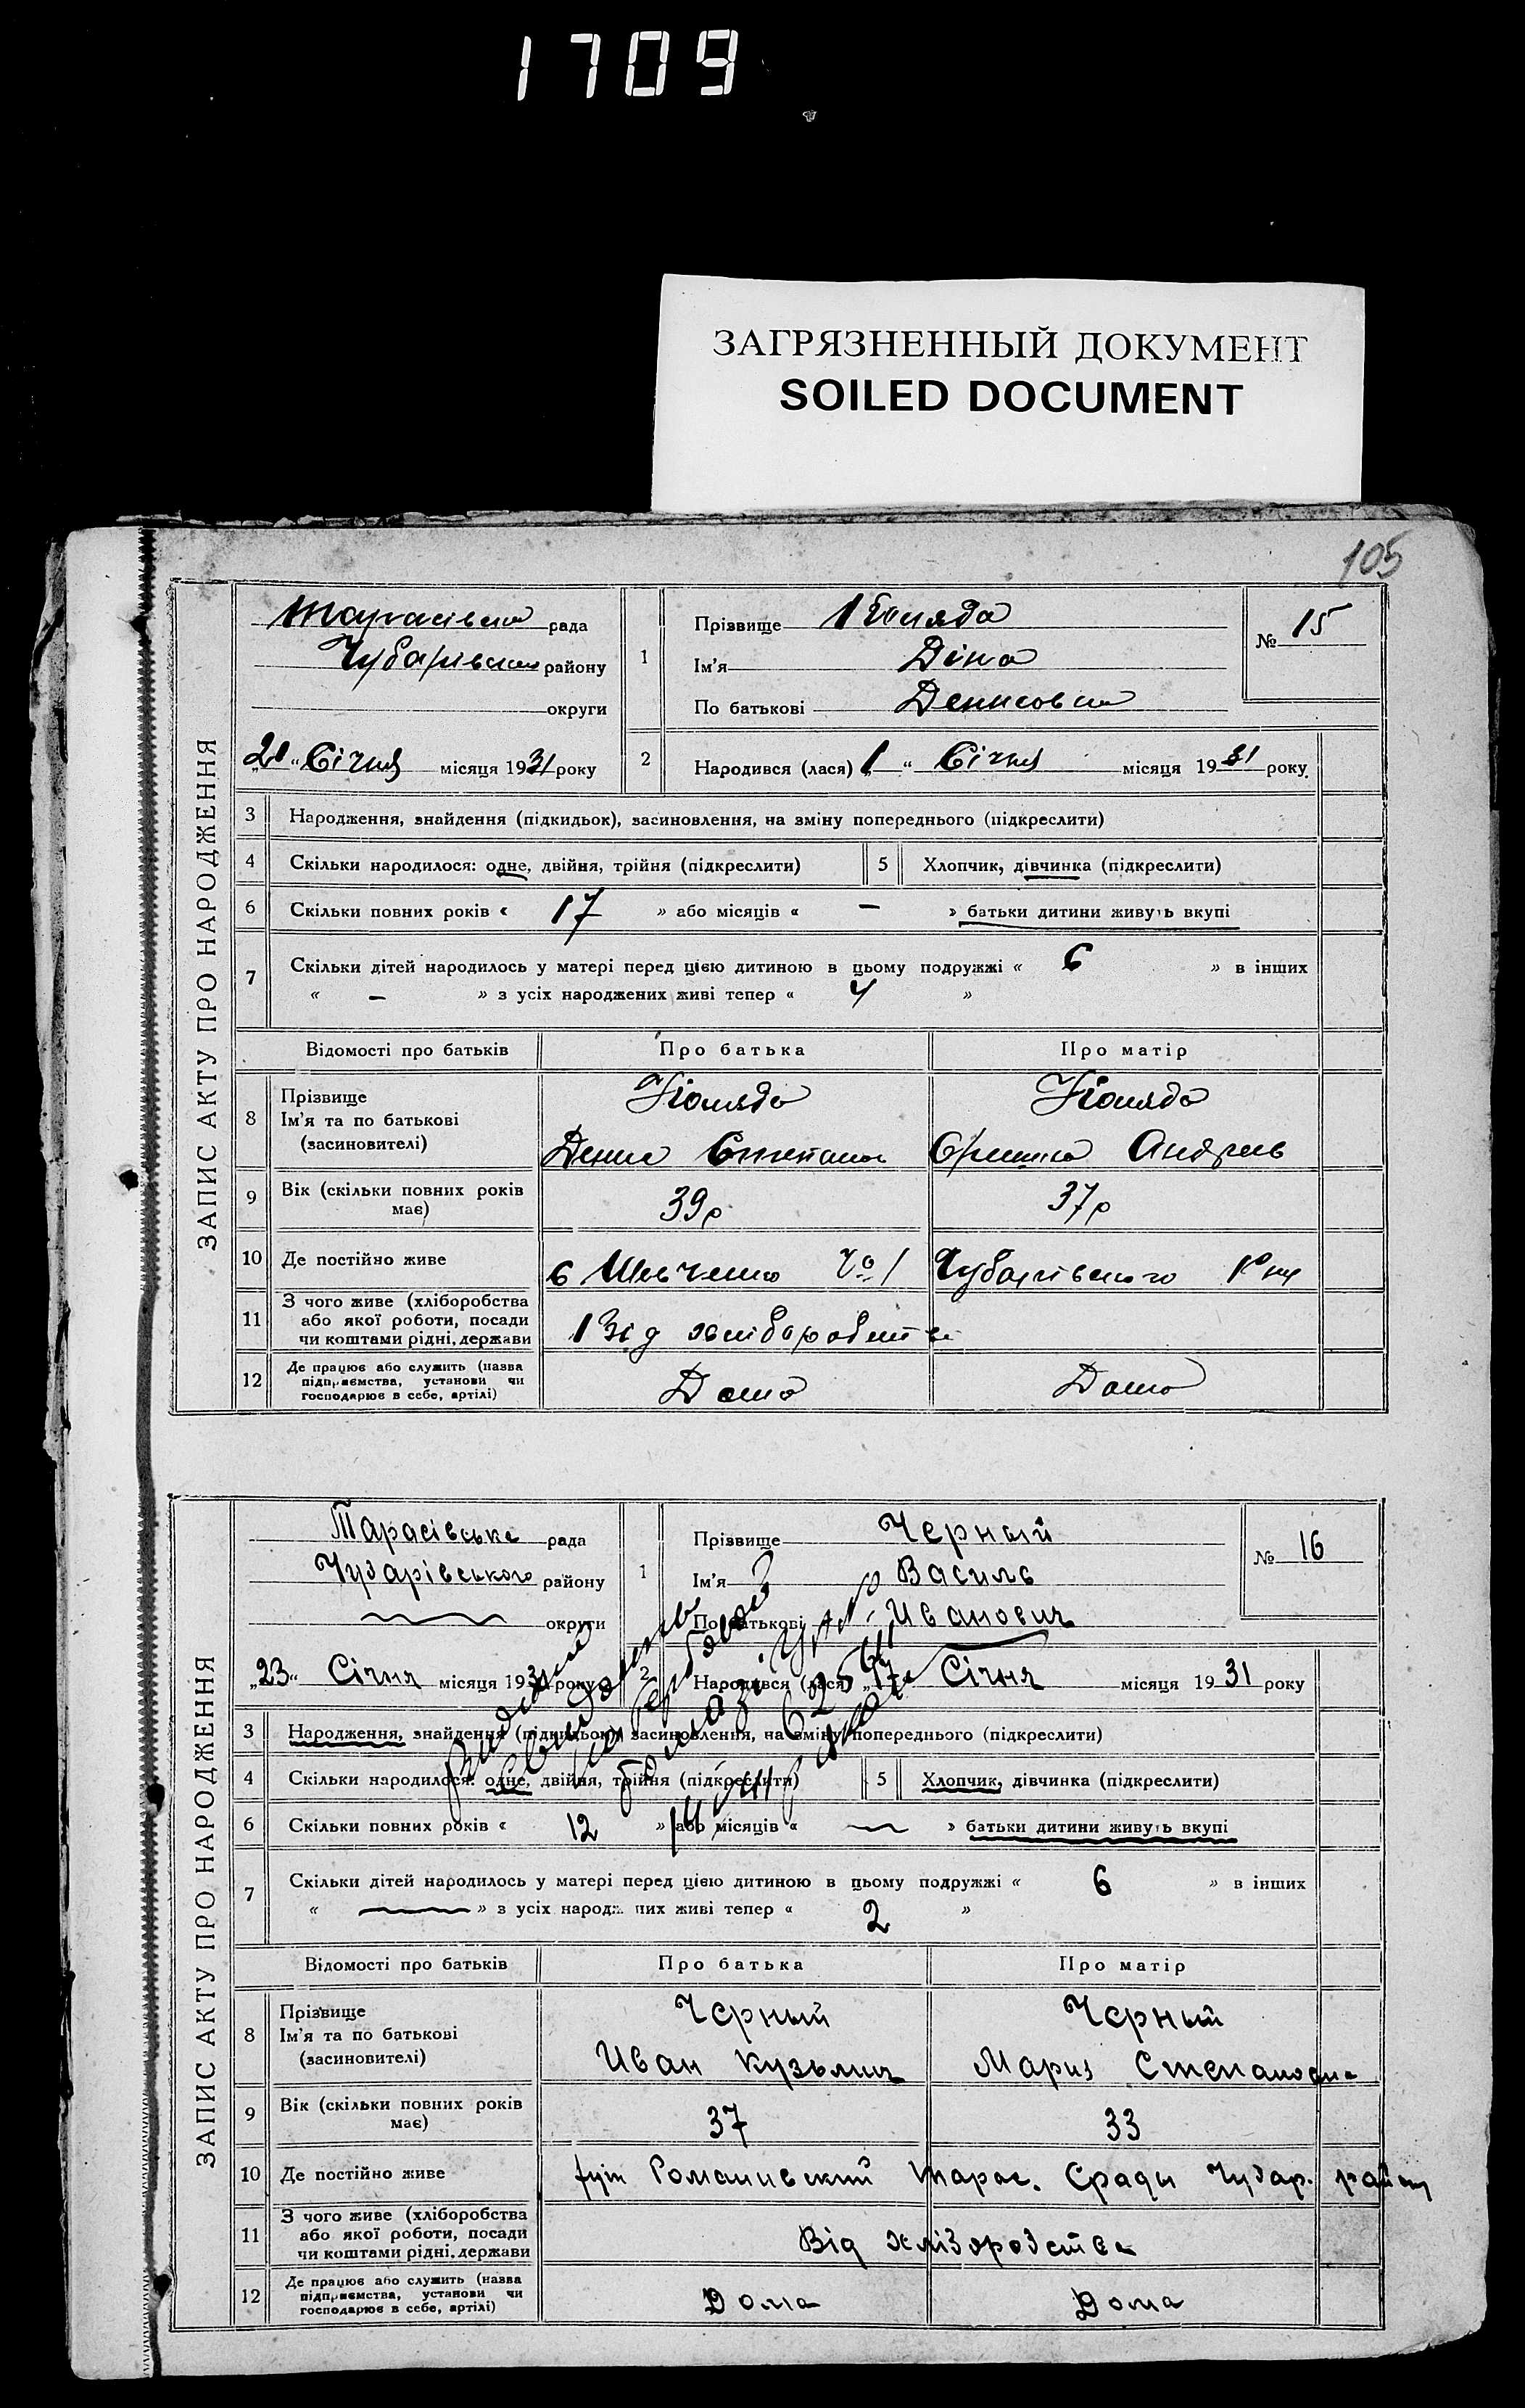 1709
ЗАГРЯЗНЕННЫЙ ДОКУМЕНТ
SOILED DOCUMENT
105
ЗАПИС АКТУ ПРО НАРОДЖЕННЯ
рада
району
округи
1
Прізвище Коляда
Ім'я Діна
По батькові Денисовна
№ 15
„21“ Січня місяця 1931 року
2
Народився (лася) „1“ Січня місяця 1931 року
3 Народження, знайдення (підкидьок), засиновлення, на зміну попереднього (підкреслити)
4 Скільки народилося: одне, двійня, трійня (підкреслити)
5 Хлопчик, дівчинка (підкреслити)
6 Скільки повних років « 17 » або місяців « — » батьки дитини живуть вкупі
7 Скільки дітей народилось у матері перед цією дитиною в цьому подружжі « 6 » в інших
« — » з усіх народжених живі тепер « 4 »
Відомості про батьків Про батька Про матір
8 Прізвище Коляда Коляда
Ім'я та по батькові
(засиновителі) Денис Степанов Андреев
9 Вік (скільки повних років має) 39р 37р
10 Де постійно живе
11 З чого живе (хліборобства
або якої роботи, посади
чи коштами рідні, держави Від хліборобства
12 Де працює або служить (назва
підприємства, установи чи
господарює в себе, артілі) Дома Дома
ЗАПИС АКТУ ПРО НАРОДЖЕННЯ
Тарасівська рада
Чубарівського району
округи
1
Прізвище Черный
Ім'я Василь
По батькові Иванович
№ 16
„23“ Січня місяця 1931 року
2
Народився (лася) „17“ Січня місяця 1931 року
3 Народження, знайдення (підкидьок), засиновлення, на зміну попереднього (підкреслити)
4 Скільки народилося: одне, двійня, трійня (підкреслити)
5 Хлопчик, дівчинка (підкреслити)
6 Скільки повних років « 12 » або місяців « — » батьки дитини живуть вкупі
7 Скільки дітей народилось у матері перед цією дитиною в цьому подружжі « 6 » в інших
« — » з усіх народжених живі тепер « 2 »
Відомості про батьків Про батька Про матір
8 Прізвище Черный Черный
Ім'я та по батькові
(засиновителі) Иван Кузьмич Мария Степановна
9 Вік (скільки повних років має) 37 33
10 Де постійно живе хут Романивский Тарас. Срады Чубар. району
11 З чого живе (хліборобства
або якої роботи, посади
чи коштами рідні, держави Від хліборобства
12 Де працює або служить (назва
підприємства, установи чи
господарює в себе, артілі) Дома Дома